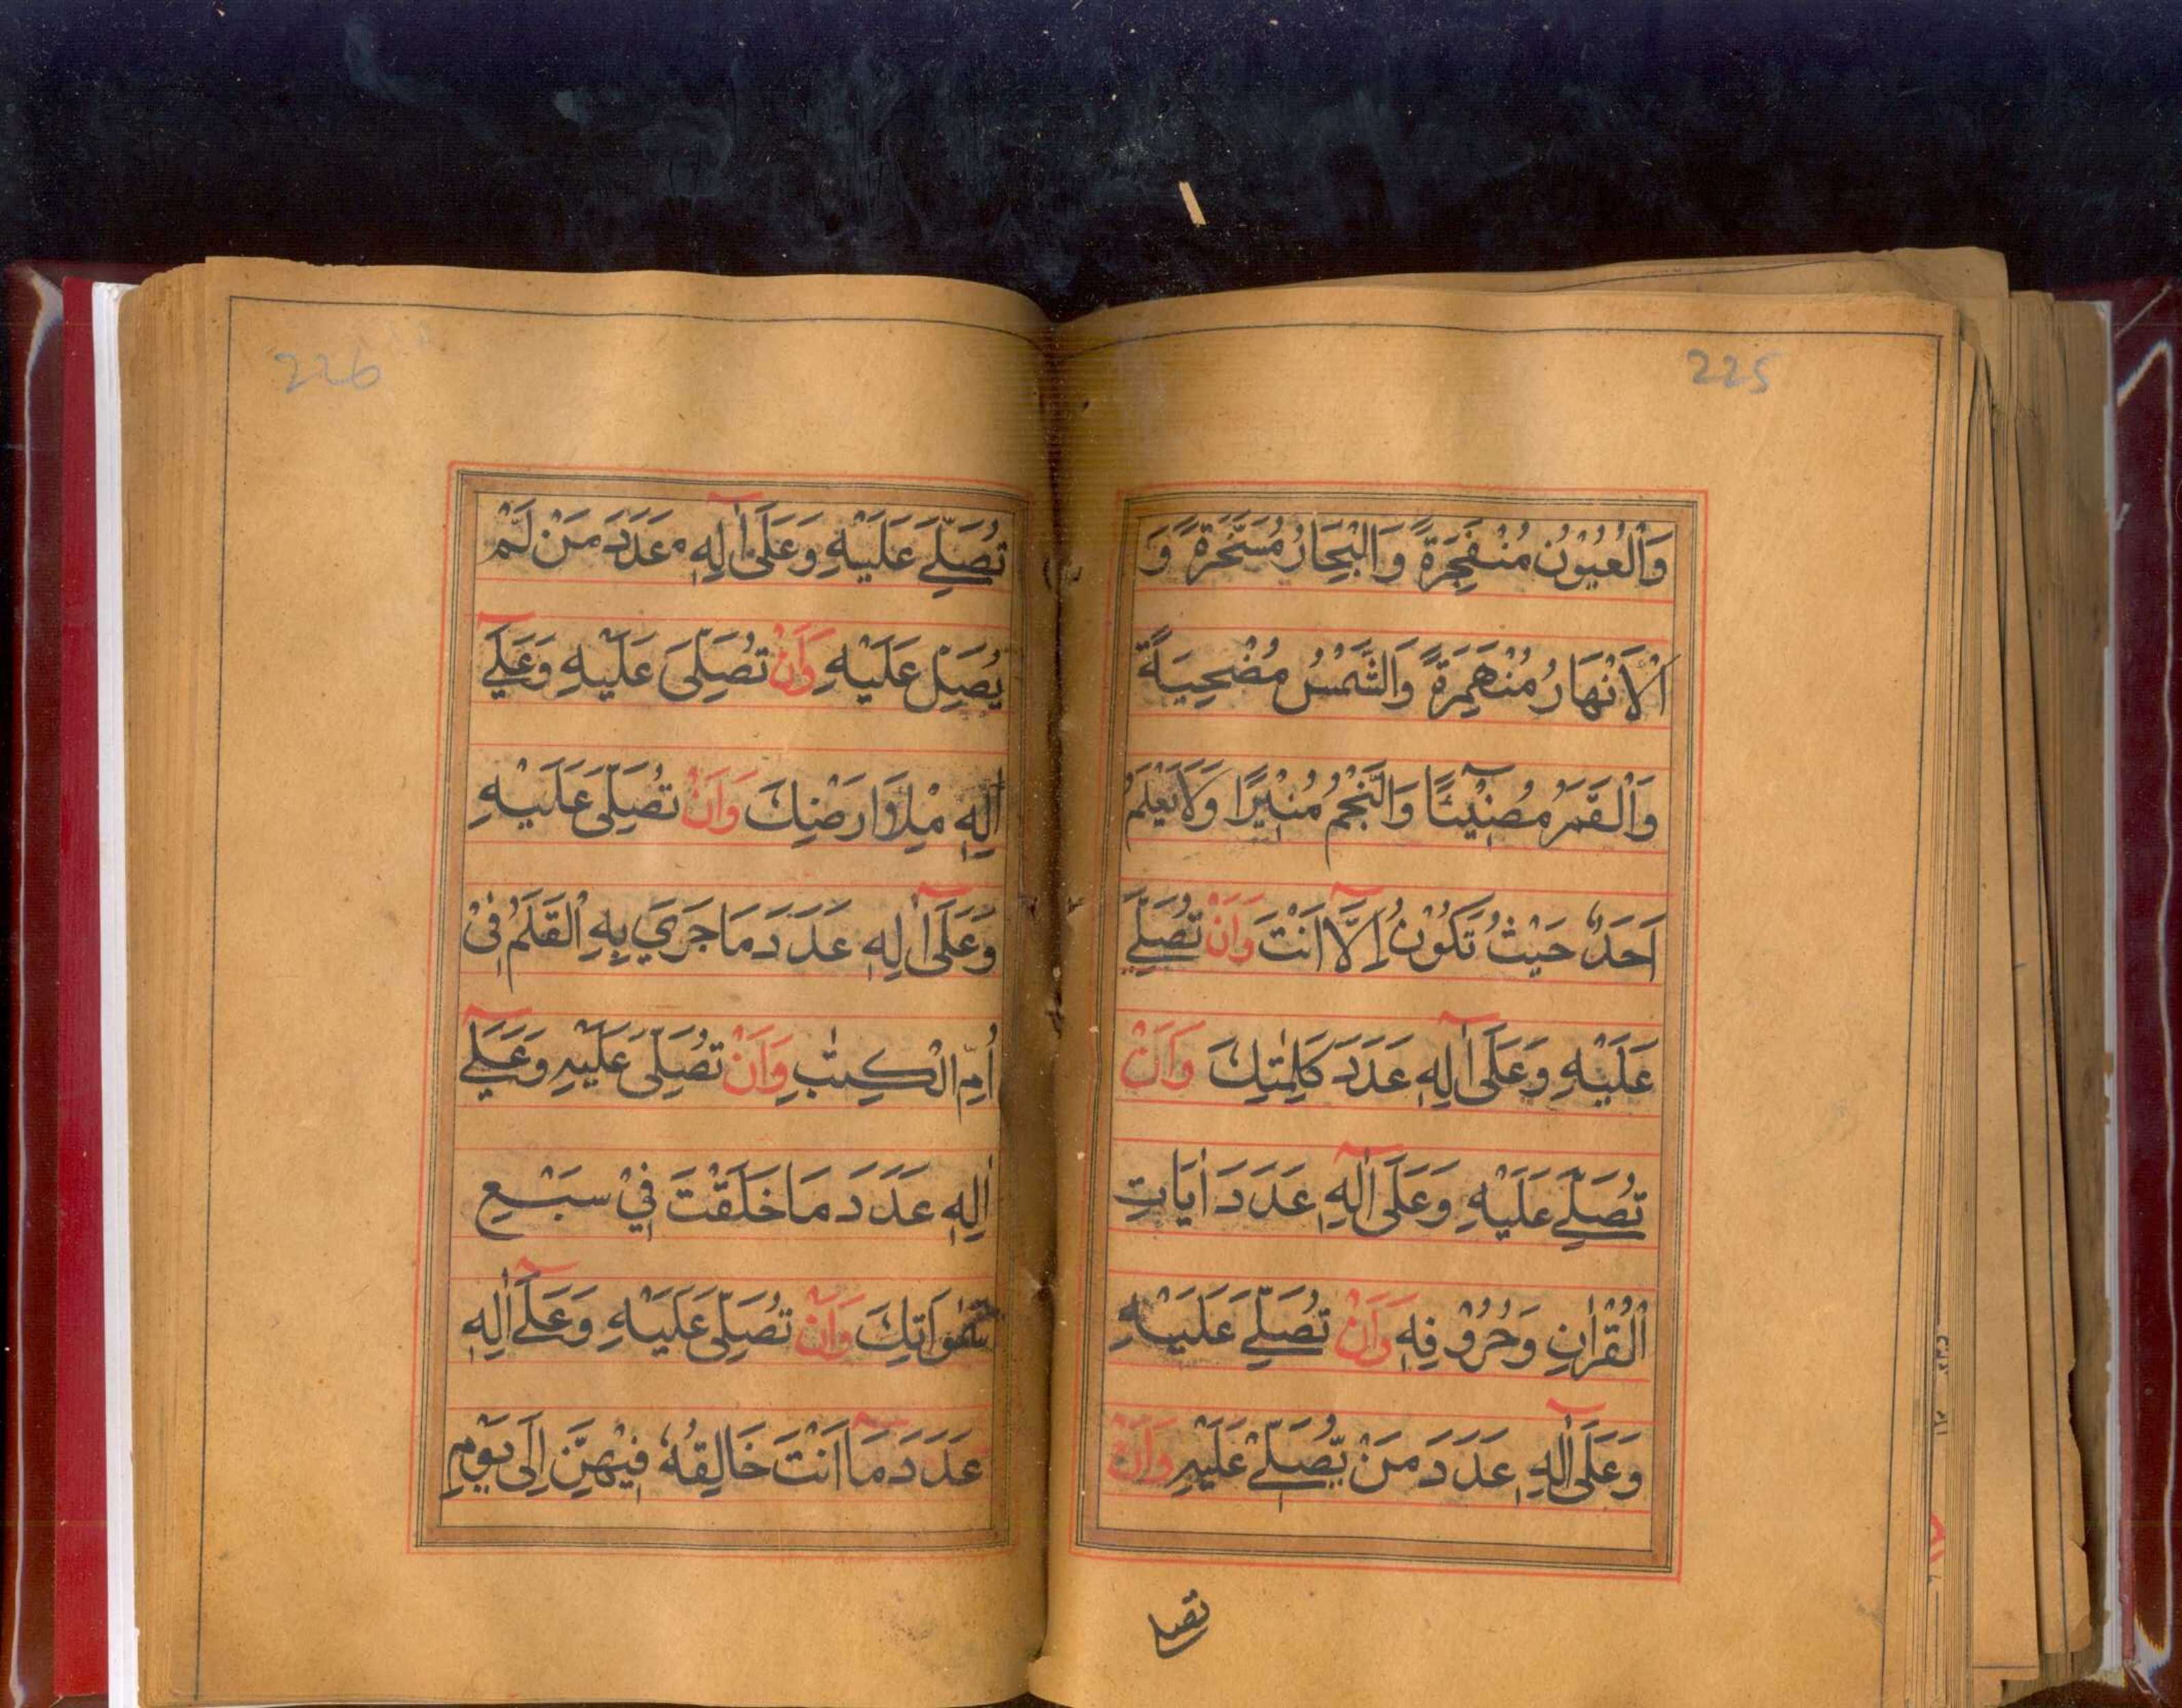 225
وَالْعُيُوْنُ مُنْفَجِرَةً وَالْبِحَارُ مُسَخَّرَةً وَ
الْاَنْهَارُ مُنْهَمِرَةً وَالشَّمْسُ مُضْحِيَةً
وَالْقَمَرُ مُضِيْئًا وَالنَّجْمُ مُنِيْرًا وَلَا يَعْلَمُ
اَحَدٌ حَيْثُ تَكُوْنُ اِلَّا اَنْتَ وَاَنْ تُصَلِّيَ
عَلَيْهِ وَعَلَى اٰلِهٖ عَدَدَ كَلِمٰتِكَ وَاَنْ
تُصَلِّيَ عَلَيْهِ وَعَلَى اٰلِهٖ عَدَدَ اٰيَاتِ
الْقُرْاٰنِ وَحُرُوْفِهٖ وَاَنْ تُصَلِّيَ عَلَيْهِ
وَعَلَى اٰلِهٖ عَدَدَ مَنْ يُّصَلِّيْ عَلَيْهِ وَاَنْ
تصلے
226
تُصَلِّيَ عَلَيْهِ وَعَلَى اٰلِهٖ عَدَدَ مَنْ لَّمْ
يُصَلِّ عَلَيْهِ وَاَنْ تُصَلِّىَ عَلَيْهِ وَعَلٰے
اٰلِهٖ مِلْاَ اَرْضِكَ وَاَنْ تُصَلِّىَ عَلَيْهِ
وَعَلَى اٰلِهٖ عَدَدَ مَا جَرٰي بِهِ الْقَلَمُ فِىْ
اُمِّ الْكِتٰبِ وَاَنْ تُصَلِّىَ عَلَيْهِ وَعَلٰے
اٰلِهٖ عَدَدَ مَا خَلَقْتَ فِيْ سَبْعِ
سَمٰوَاتِكَ وَاَنْ تُصَلِّىَ عَلَيْهِ وَعَلٰے اٰلِهٖ
عَدَدَ مَا اَنْتَ خَالِقُهٗ فِيْهِنَّ اِلٰى يَوْمِ